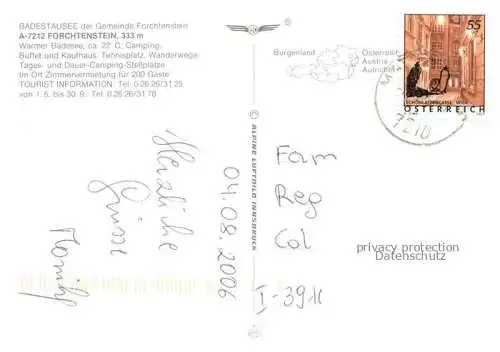 BADESTAUSEE der Gemeinde Forchtenstein
A-7212 FORCHTENSTEIN, 333 m
Warmer Badesee, ca. 22°C, Camping,
Buffet und Kaufhaus, Tennisplatz, Wanderwege
Tages- und Dauer-Camping-Stellplätze
Im Ort Zimmervermietung für 200 Gäste
TOURIST INFORMATION: Tel. 0 26 26/31 25
von 1. 5. bis 30. 9. Tel. 0 26 26/31 78
Herzliche
Grüsse
04.08.2006
© ALPINE LUFTBILD INNSBRUCK
Burgenland
Österreich
Austria
Autriche
7210
55
SCHÖNLATERNGASSE, WIEN
ÖSTERREICH
Fam
Reg
Col
privacy protection
Datenschutz